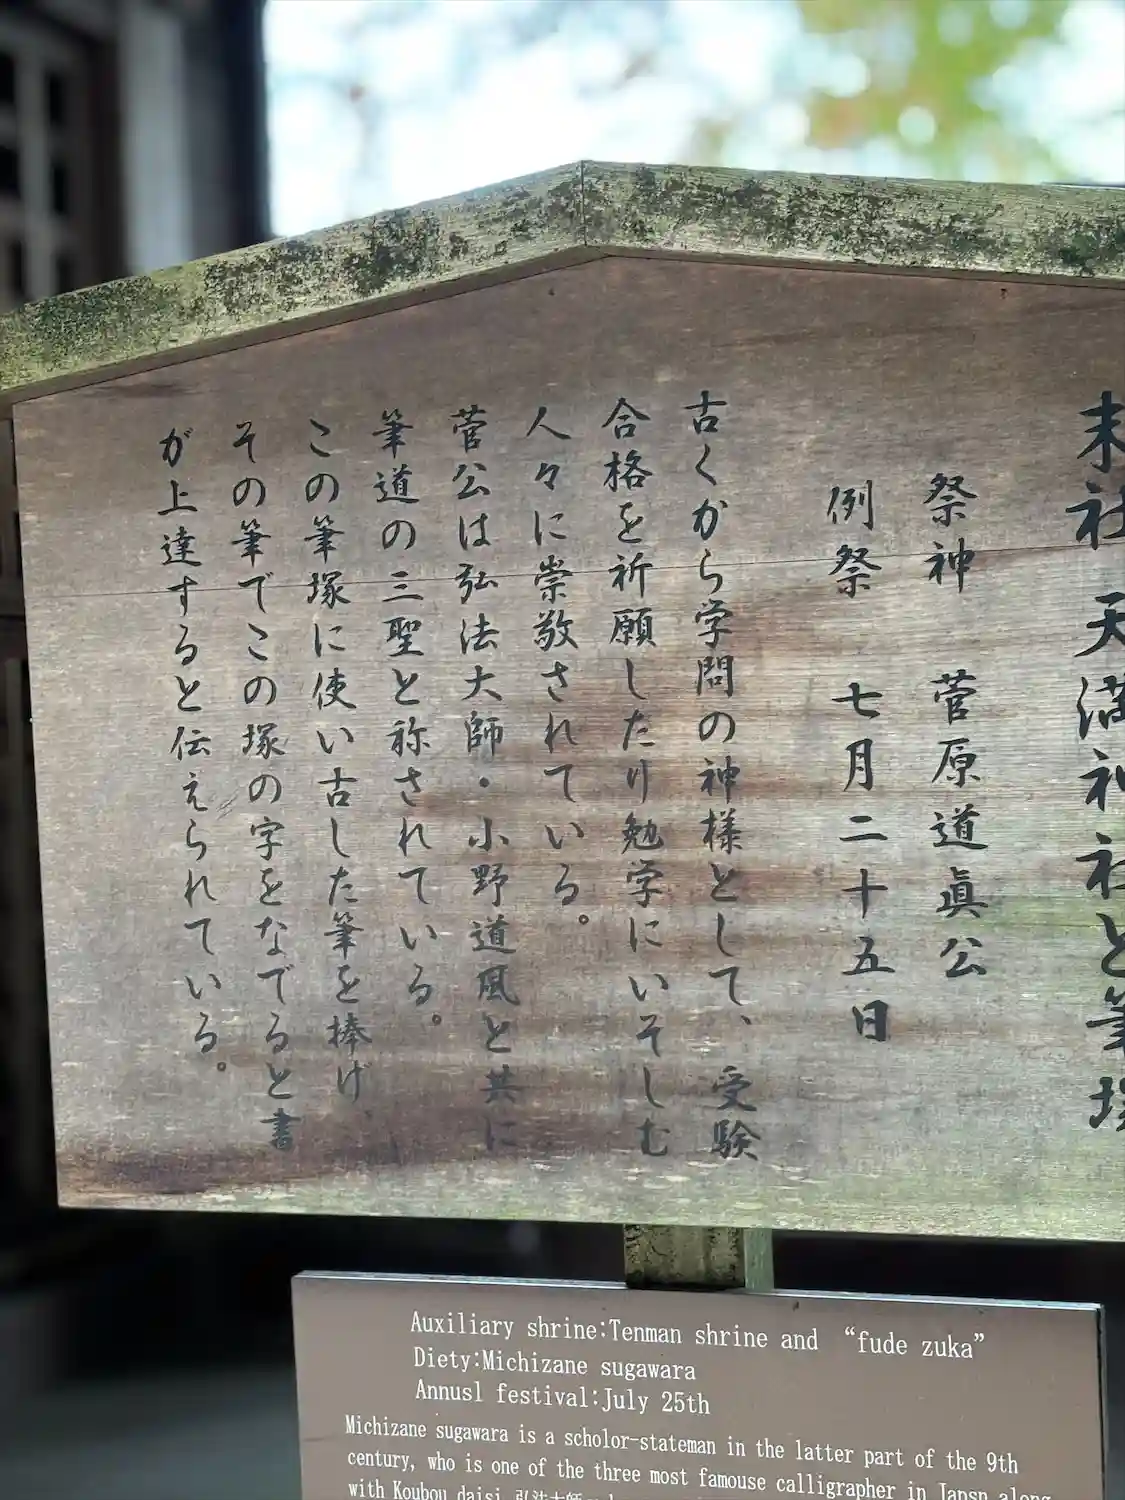 末社 天満神社と筆塚
祭神 菅原道眞公
例祭 七月二十五日
古くから学問の神様として、受験
合格を祈願したり勉学にいそしむ
人々に崇敬されている。
菅公は弘法大師・小野道風と共に
筆道の三聖と称されている。
この筆塚に使い古した筆を捧げ、
その筆でこの塚の字をなでると書
が上達すると伝えられている。
Auxiliary shrine:Tenman shrine and “fude zuka”
Diety:Michizane sugawara
Annusl festival:July 25th
Michizane sugawara is a scholor-stateman in the latter part of the 9th
century, who is one of the three most famouse calligrapher in Japsn along
with Koubou daisi 弘法大師